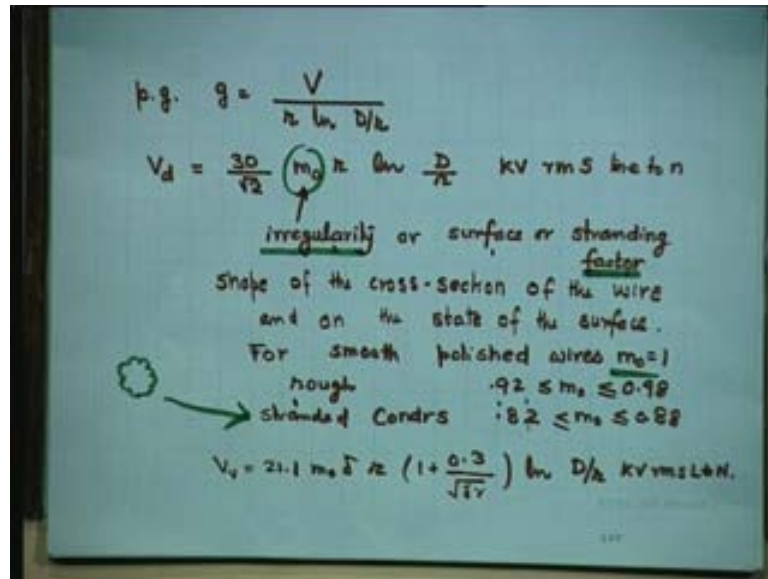 p.g. g = V / r ln D/r
Vd = 30/√2 m₀ r ln D/r kV rms line to n
irregularity or surface or stranding
factor
shape of the cross-section of the wire
and on the state of the surface.
For smooth polished wires m₀=1
rough .92 ≤ m₀ ≤ 0.98
stranded Condrs .82 ≤ m₀ ≤ 0.88
Vv = 21.1 m₀ δ r (1 + 0.3/√δr) ln D/r kV rms L to N.